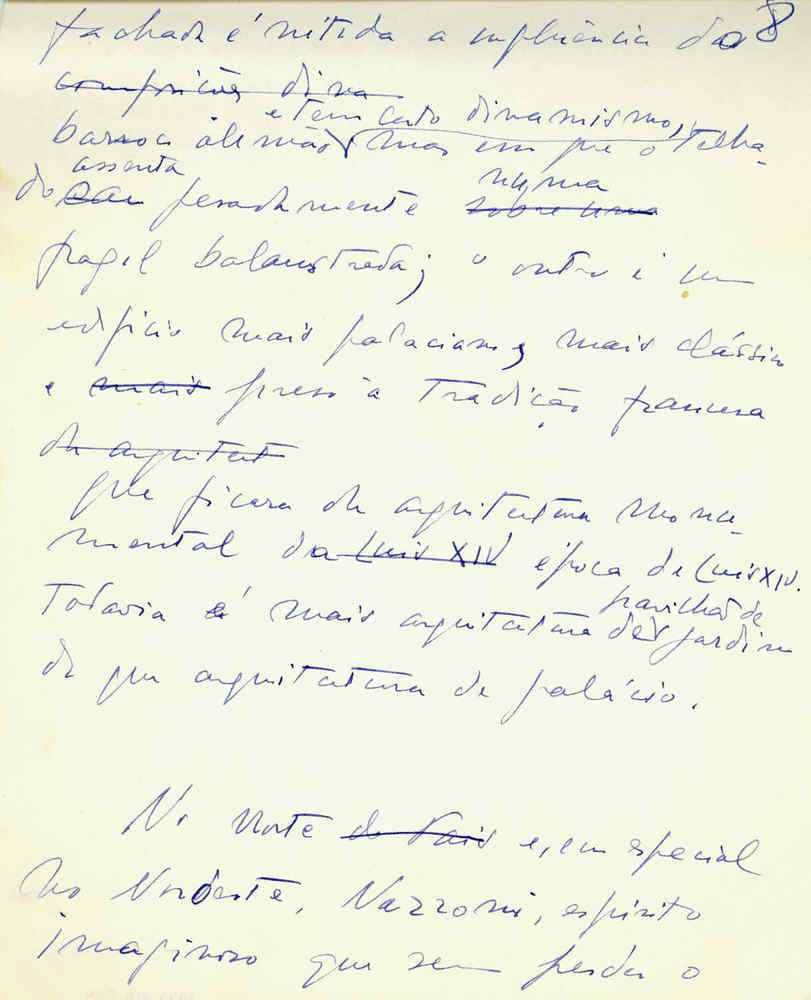 8
fachada é nítida a influência do
composição dina
e tem certo dinamismo,
barroco alemão mas em que o telha-
assenta numa
do pesadamente sobre uma
fragil balaustrada; o outro é um
edificio mais palaciano, mais clássico
e mais preso à Tradição francesa
da arquitect
que ficara da arquitectura monu-
mental da Luis XIV época de Luis XIV.
pavilhão de
Todavia é mais arquitectura de jardim
do que arquitectura de palácio.
No Norte do Pais e, em especial
no Nordeste, Nazzoni, espírito
imaginoso que sem perder o